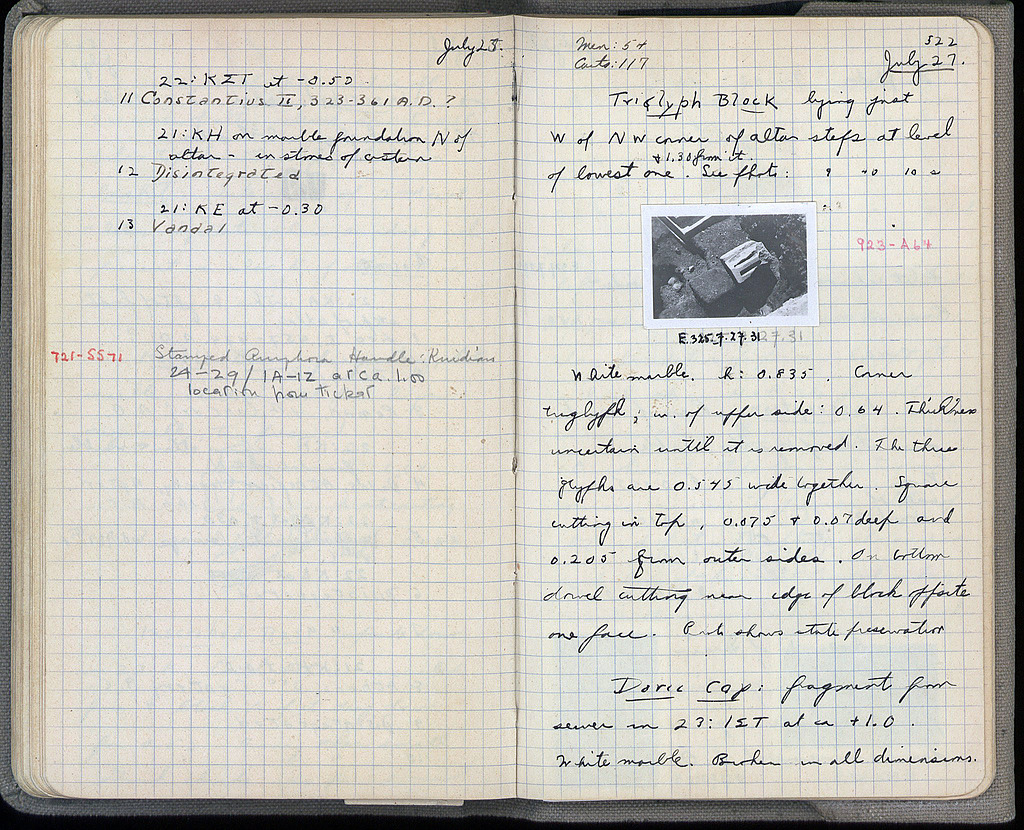 July 25.
22: KΣT at -0.50
11 Constantius II, 323-361 A.D. ?
21: KH on marble foundation N of
altar - in stones of cistern
12 Disintegrated
21: KE at -0.30
13 Vandal
721-SS71 Stamped Amphora Handle: Knidian
24-29/1A-1Z at ca. 1.00
location from ticket
Men: 54
Carts: 117
522
July 27.
Triglyph Block lying just
W of NW corner of altar steps at level
+ 1.30 from it.
of lowest one. See photo:
923-A64
E.325.7.27.31
White marble. H: 0.835. Corner
triglyph; w. of upper side: 0.64. Thickness
uncertain until it is removed. The three
glyphs are 0.545 wide together. Square
cutting in top, 0.075 + 0.07 deep and
0.205 from outer sides. On bottom
dowel cutting near edge of block opposite
one face. shows state preservation
Doric Cap: fragment from
sewer in 23: IΣT at ca +1.0.
White marble. Broken in all dimensions.